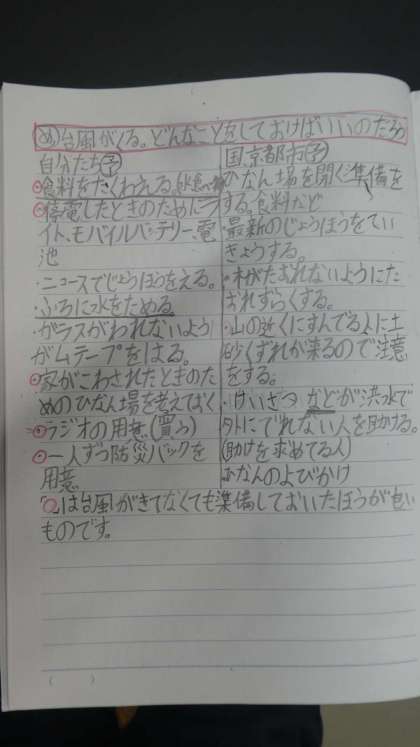 め台風がくる。どんなことをしておけばいいのだろう
自分たち予
食料をたくわえる。
停電したときのためにラ
イト、モバイルバッテリー、電
池
・ニュースでじょうほうをえる。
・ふろに水をためる
・ガラスがわれないよう
ガムテープをはる。
家がこわされたときのた
めのひなん場を考えておく
・ラジオの用意(買う)
一人ずつ防災バックを
用意
国、京都府予
ひなん場を開く準備を
する。食料など
最新のじょうほうをてい
きょうする。
・木がたおれないようにた
おれずらくする。
・山の近くにすんでる人に土
砂くずれが来るので注意
をする。
・けいさつなどが洪水で
外にでれない人を助ける。
(助けを求めてる人)
ひなんのよびかけ
○は台風がきてなくても準備しておいたほうが
ものです。